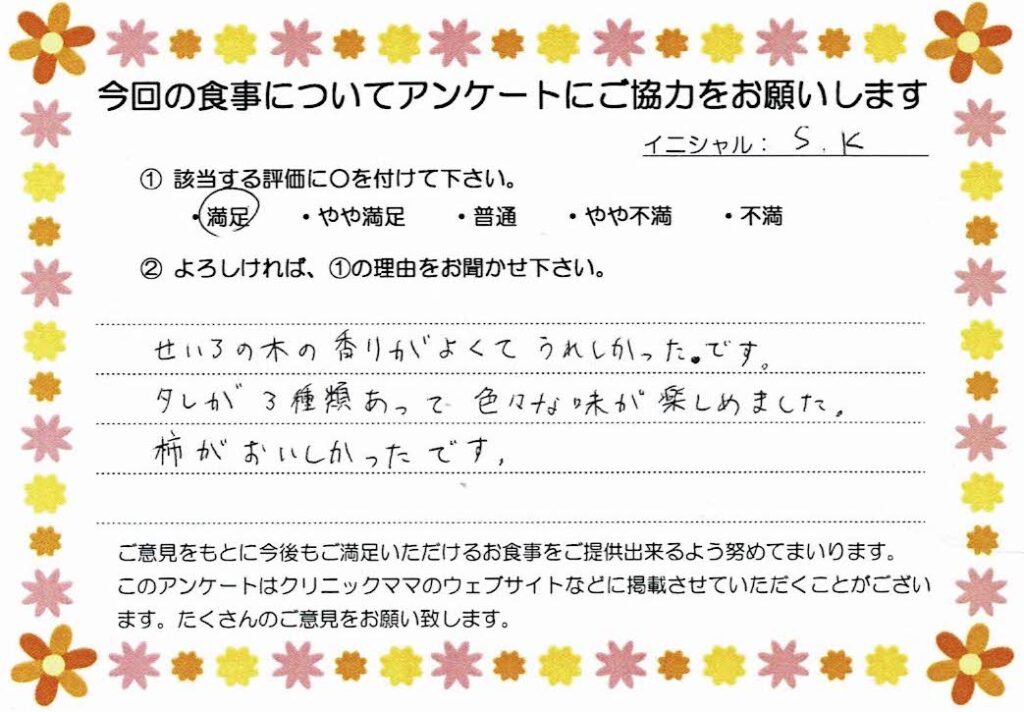 今回の食事についてアンケートにご協力をお願いします
イニシャル： S.K
① 該当する評価に〇を付けて下さい。
・満足 ・やや満足 ・普通 ・やや不満 ・不満
② よろしければ、①の理由をお聞かせ下さい。
せいろの木の香りがよくてうれしかった。です。
タレが３種類あって色々な味が楽しめました。
柿がおいしかったです。
ご意見をもとに今後もご満足いただけるお食事をご提供出来るよう努めてまいります。
このアンケートはクリニックママのウェブサイトなどに掲載させていただくことがござい
ます。たくさんのご意見をお願い致します。